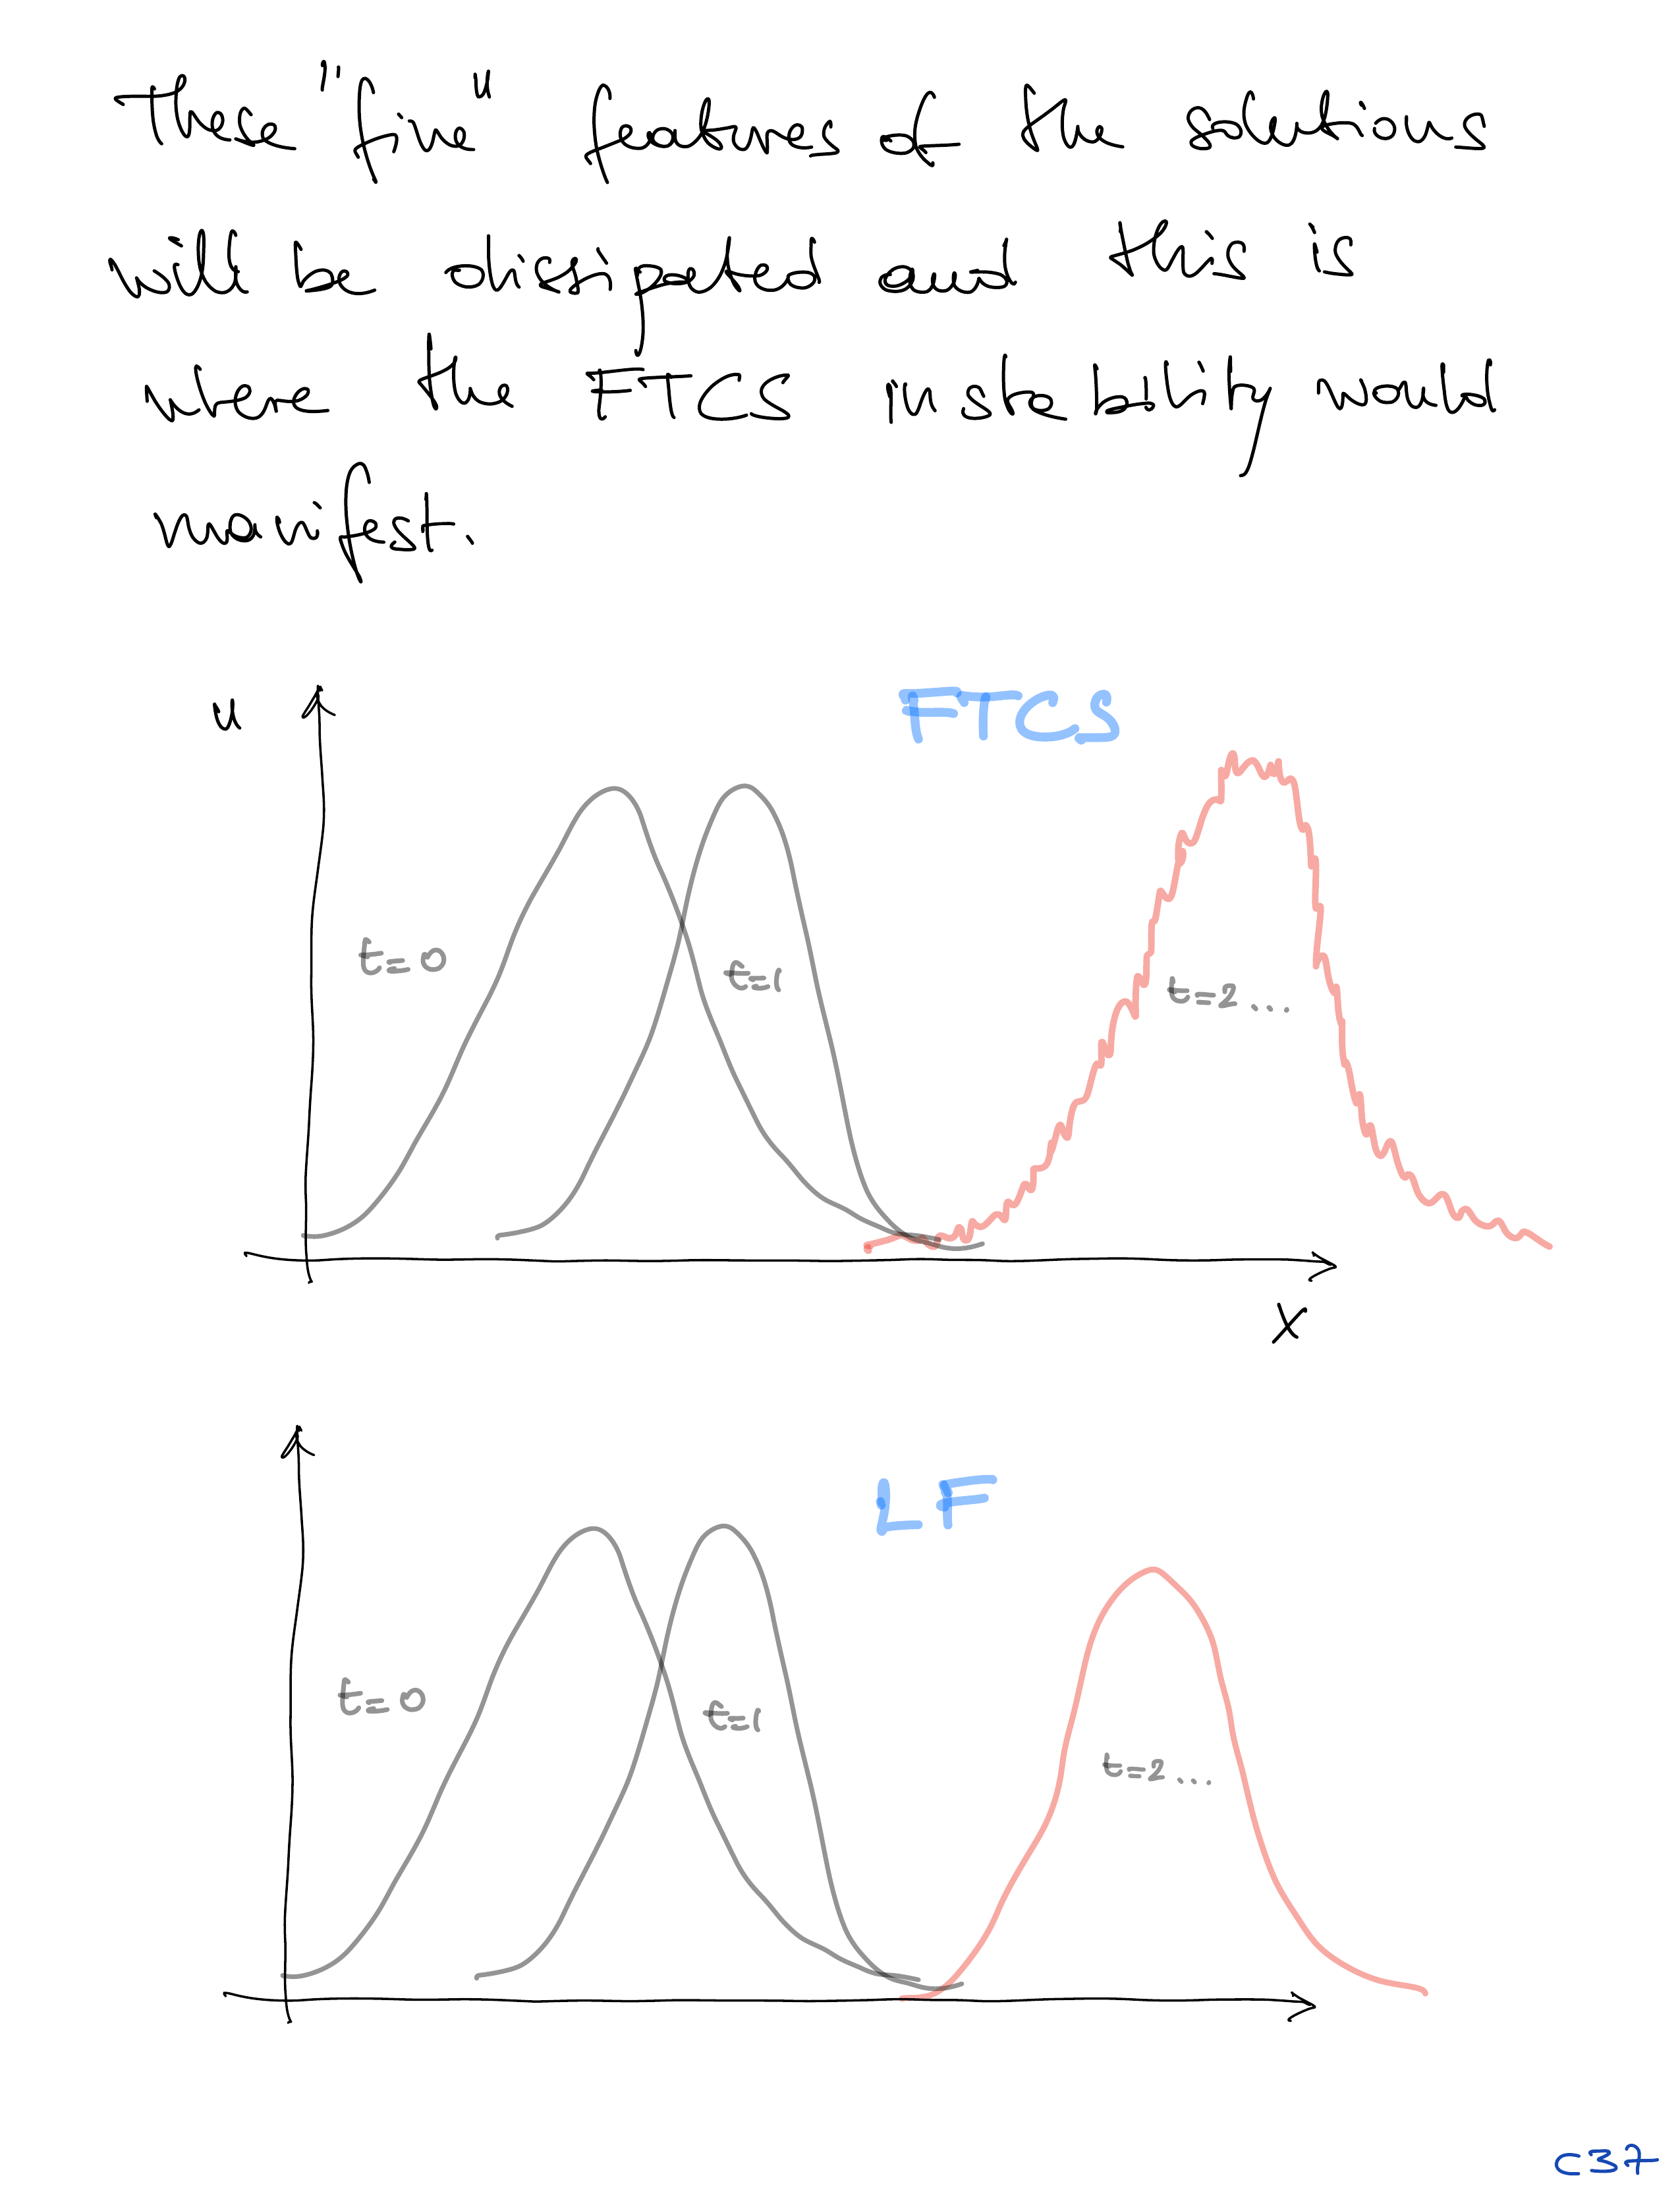 These "fine" features of the solutions
will be dissipated and this is
where the FTCS instability would
manifest.
u
FTCS
t=0
t=1
t=2...
x
LF
t=0
t=1
t=2...
C37